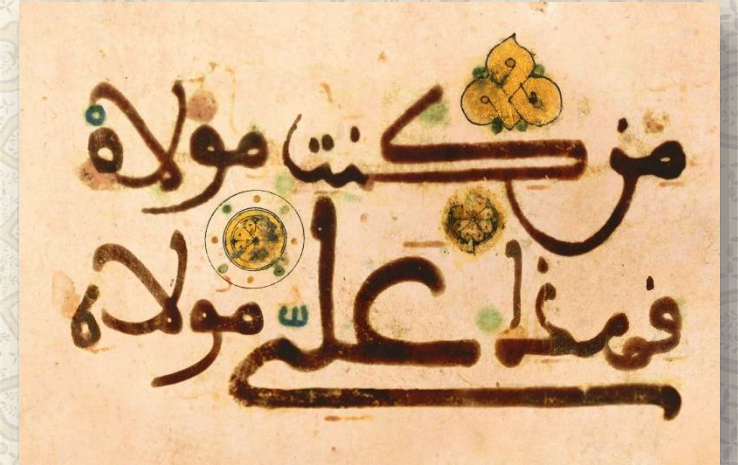 من كنت مولاه
فهذا علیّ مولاه